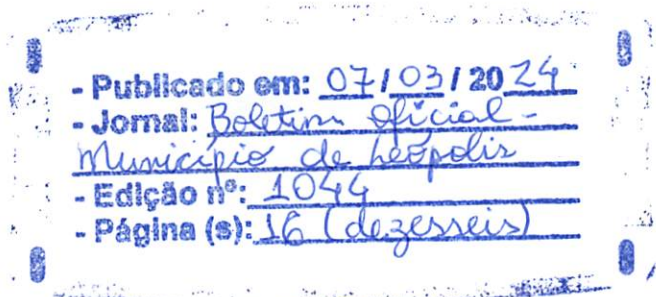 - Publicado em: 07/03/2024
- Jornal: Boletim Oficial -
Município de Leópolis
- Edição nº: 1044
- Página (s): 16 (dezesseis)